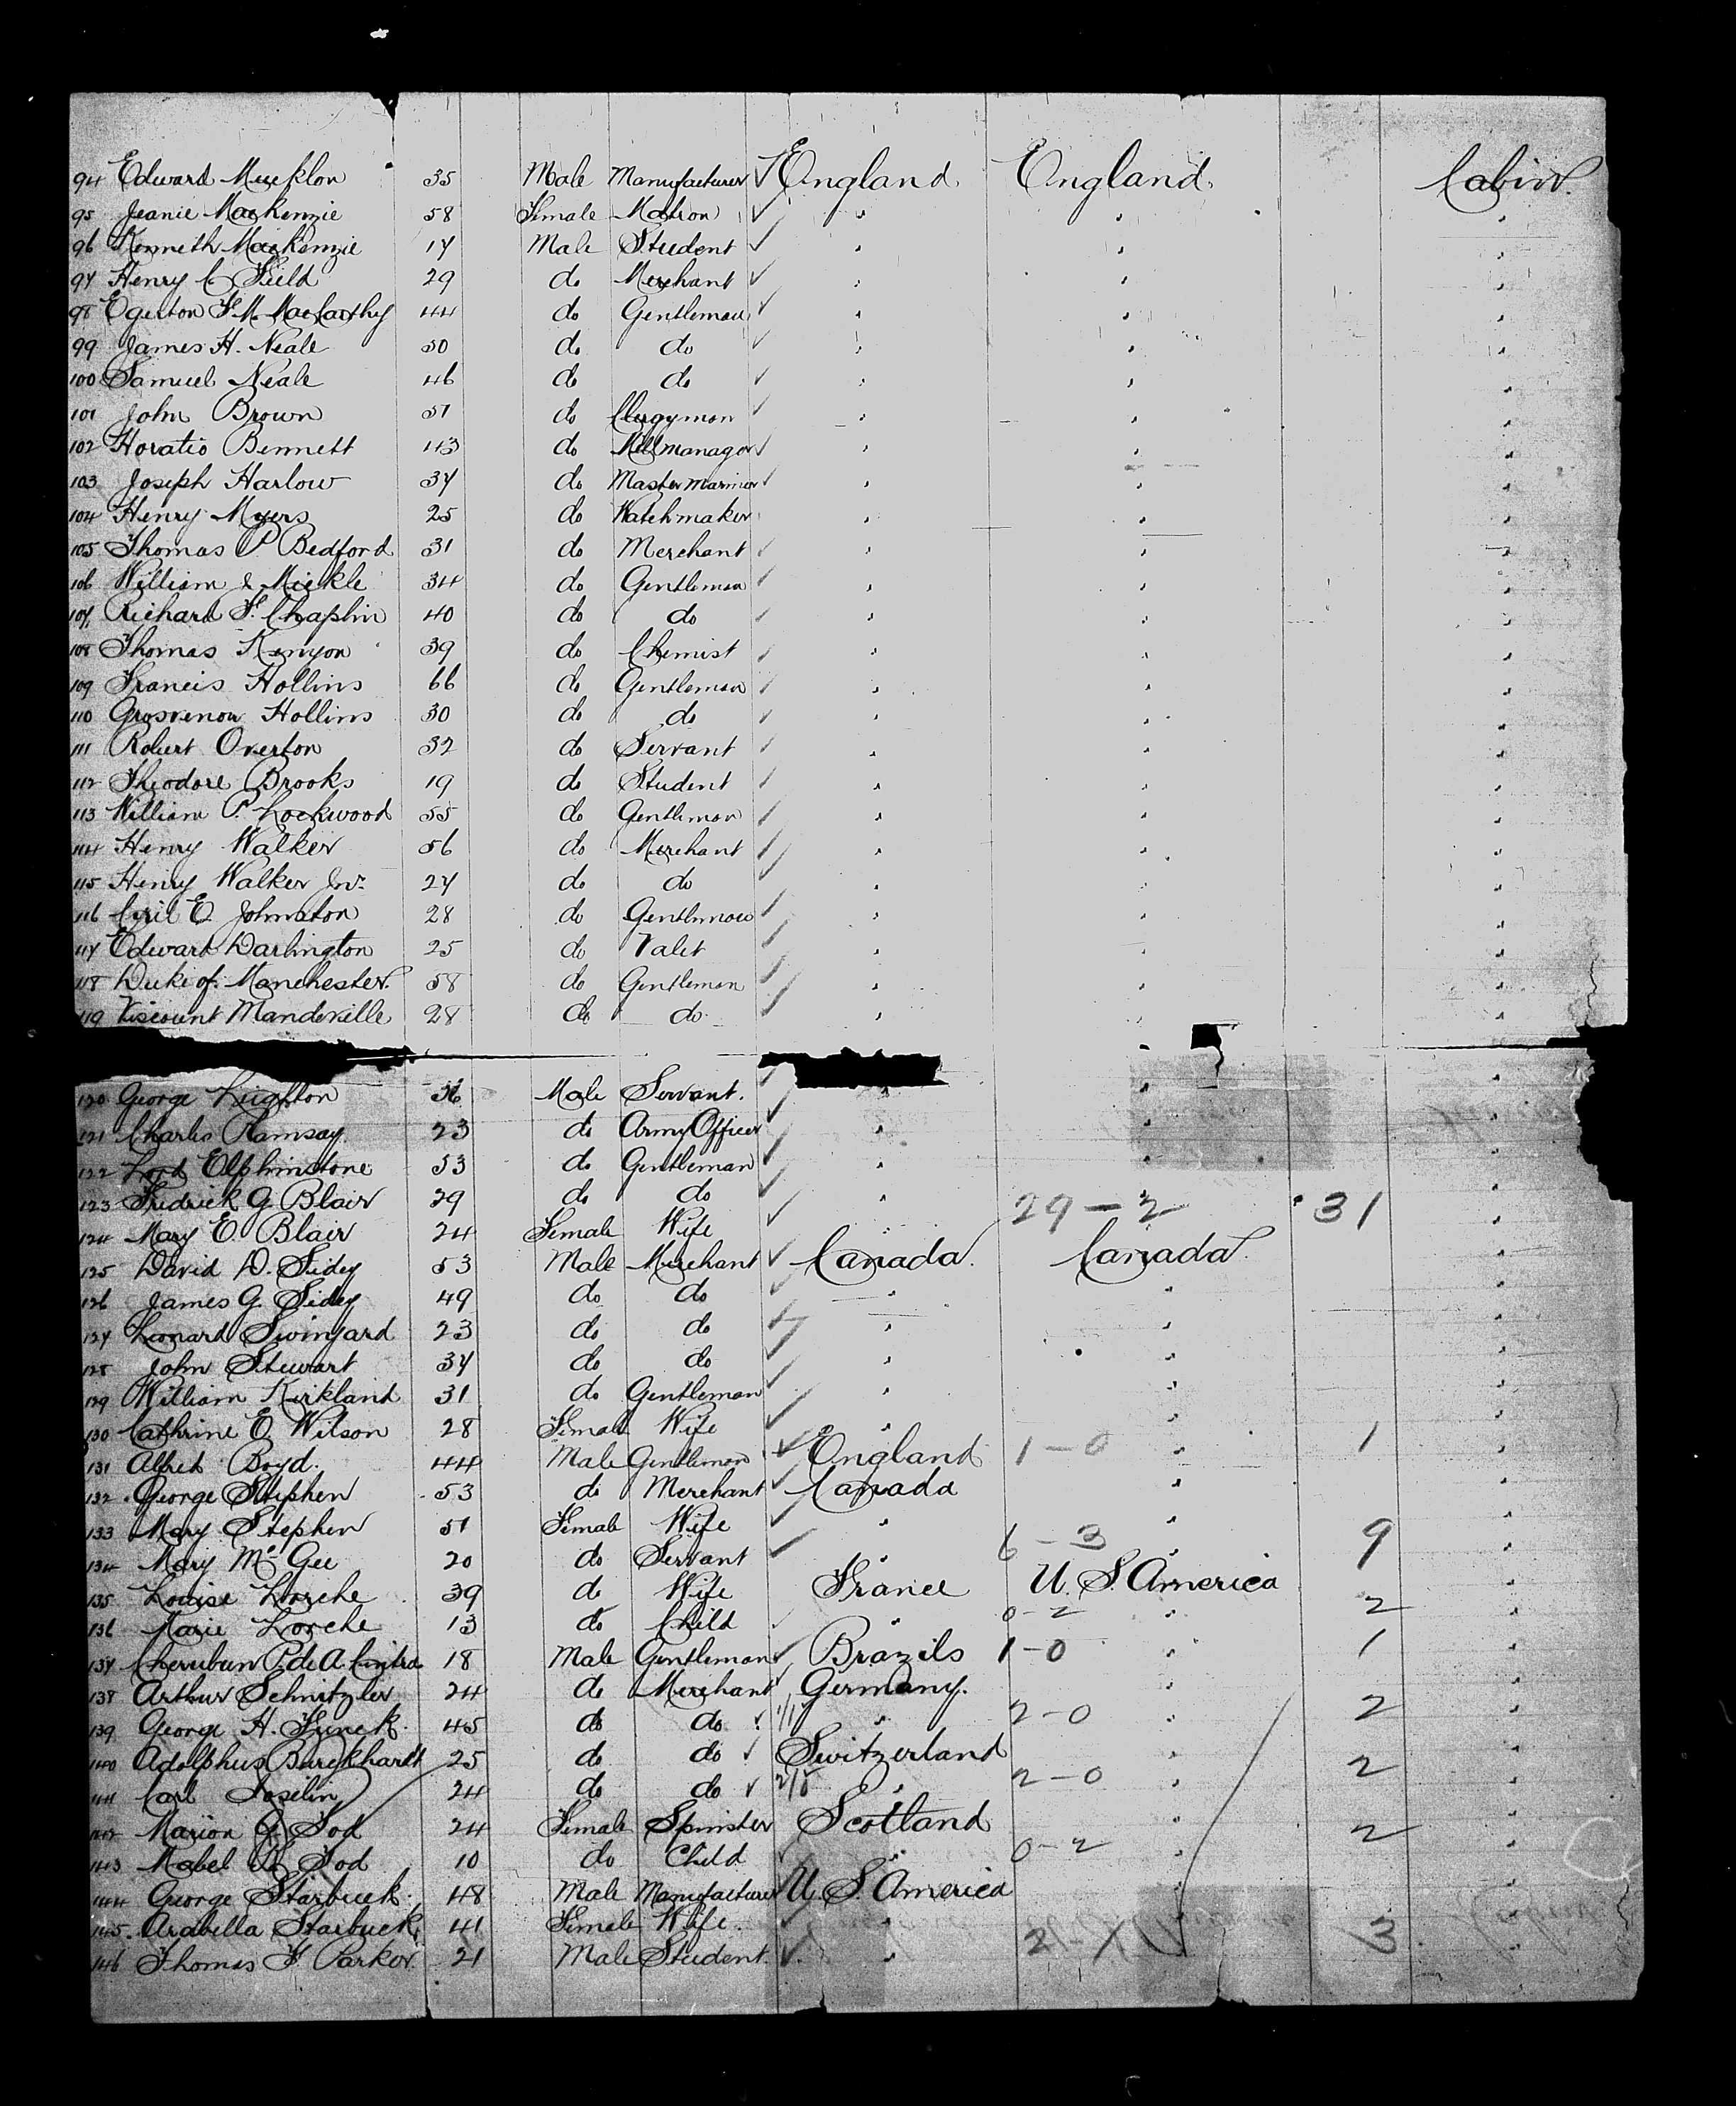 94 Edward Mucklow 35 Male Manufacturer England England Cabin
95 Jeanie MacKenzie 58 Female Matron " " "
96 Kenneth MacKenzie 17 Male Student " " "
97 Henry C Field 29 do Merchant " " "
98 Egerton F. M. MacCarthy 44 do Gentleman " " "
99 James H. Neale 50 do do " " "
100 Samuel Neale 46 do do " " "
101 John Brown 51 do Clergyman " " "
102 Horatio Bennett 43 do Mill manager " " "
103 Joseph Harlow 37 do Master mariner " " "
104 Henry Myers 25 do Watchmaker " " "
105 Thomas P Bedford 31 do Merchant " " "
106 William & Mickle 34 do Gentleman " " "
107 Richard F. Chaplin 40 do do " " "
108 Thomas Kenyon 39 do Chemist " " "
109 Francis Hollins 66 do Gentleman " " "
110 Grosvenor Hollins 30 do do " " "
111 Robert Overton 32 do Servant " " "
112 Theodore Brooks 19 do Student " " "
113 William P. Lockwood 55 do Gentleman " " "
114 Henry Walker 56 do Merchant " " "
115 Henry Walker Jnr 27 do do " " "
116 Cyril E. Johnston 28 do Gentleman " " "
117 Edward Darlington 25 do Valet " " "
118 Duke of Manchester 58 do Gentleman " " "
119 Viscount Mandeville 28 do do " " "
120 George Leighton 36 Male Servant. " " "
121 Charles Ramsay 23 do Army Officer " " "
122 Lord Elphinstone 53 do Gentleman " " "
123 Fredrick G Blair 29 do do " 29-2 31 "
124 Mary E. Blair 24 Female Wife "
125 David D. Sidey 53 Male Merchant Canada. Canada "
126 James G. Sidey 49 do do " " "
127 Leonard Swinyard 23 do do " " "
128 John Stewart 37 do do " " "
129 William Kirkland 31 do Gentleman " " "
130 Cathrine E. Wilson 28 Female Wife " " "
131 Alfred Boyd. 44 Male Gentleman England 1-0 " 1 "
132 George Stephen 53 do Merchant Canada " "
133 Mary Stephen 51 Female Wife " " "
134 Mary McGee 20 do Servant " 6-3 " 9 "
135 Louise Lorche 39 do Wife France U. S. America "
136 Marie Lorche 13 do Child " 0-2 " 2 "
137 P de A. 18 Male Gentleman Brazils 1-0 " 1 "
138 Arthur Schnitzler 24 do Merchant Germany. " "
139 George H. Funck. 45 do do " 2-0 " 2 "
140 Adolphus Burckhardt 25 do do Switzerland " "
141 Carl Joselin 24 do do " 2-0 " 2 "
142 Marion G. Tod 24 Female Spinster Scotland " "
143 Mabel Tod 10 do Child " 0-2 " 2 "
144 George Starbuck. 48 Male Manufacturer U. S. America "
145. Arabella Starbuck. 41 Female Wife. " 3 "
146 Thomas F. Parker. 21 Male Student. " "